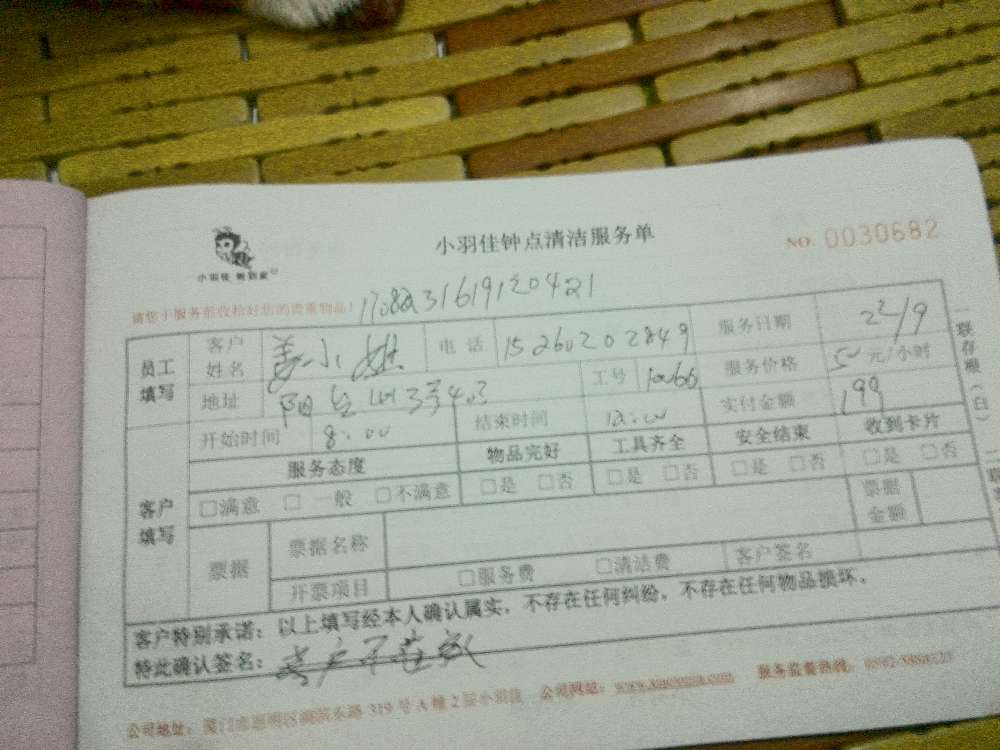 小羽佳钟点清洁服务单
NO. 0030682
小羽佳
请您于服务前收检好您的贵重物品!
员工填写 客户姓名 姜小姐 电话 15260202849 服务日期 22/9
地址 工号 服务价格 50元/小时
开始时间 8:00 结束时间 12:00 实付金额 199
客户填写 服务态度 物品完好 工具齐全 安全结束 收到卡片
□满意 □一般 □不满意 □是 □否 □是 □否 □是 □否 □是 □否
票据 票据名称 票据金额
开票项目 □服务费 □清洁费 客户签名
客户特别承诺：以上填写经本人确认属实，不存在任何纠纷，不存在任何物品损坏。
特此确认签名：客户不在家
公司地址：厦门市思明区 东路319号A幢2层小羽佳 公司网址： 服务监督热线：
一联存根（白）